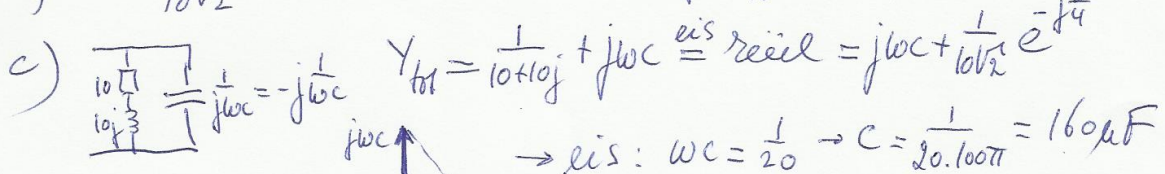 10√2
c) 10 10j 1/jωc = -j 1/ωc Y_tot = 1/(10+10j) + jωc eis = reëel = jωc + 1/(10√2) e^(-jπ/4)
jωc → eis: ωc = 1/20 → C = 1/(20.100π) = 160μF